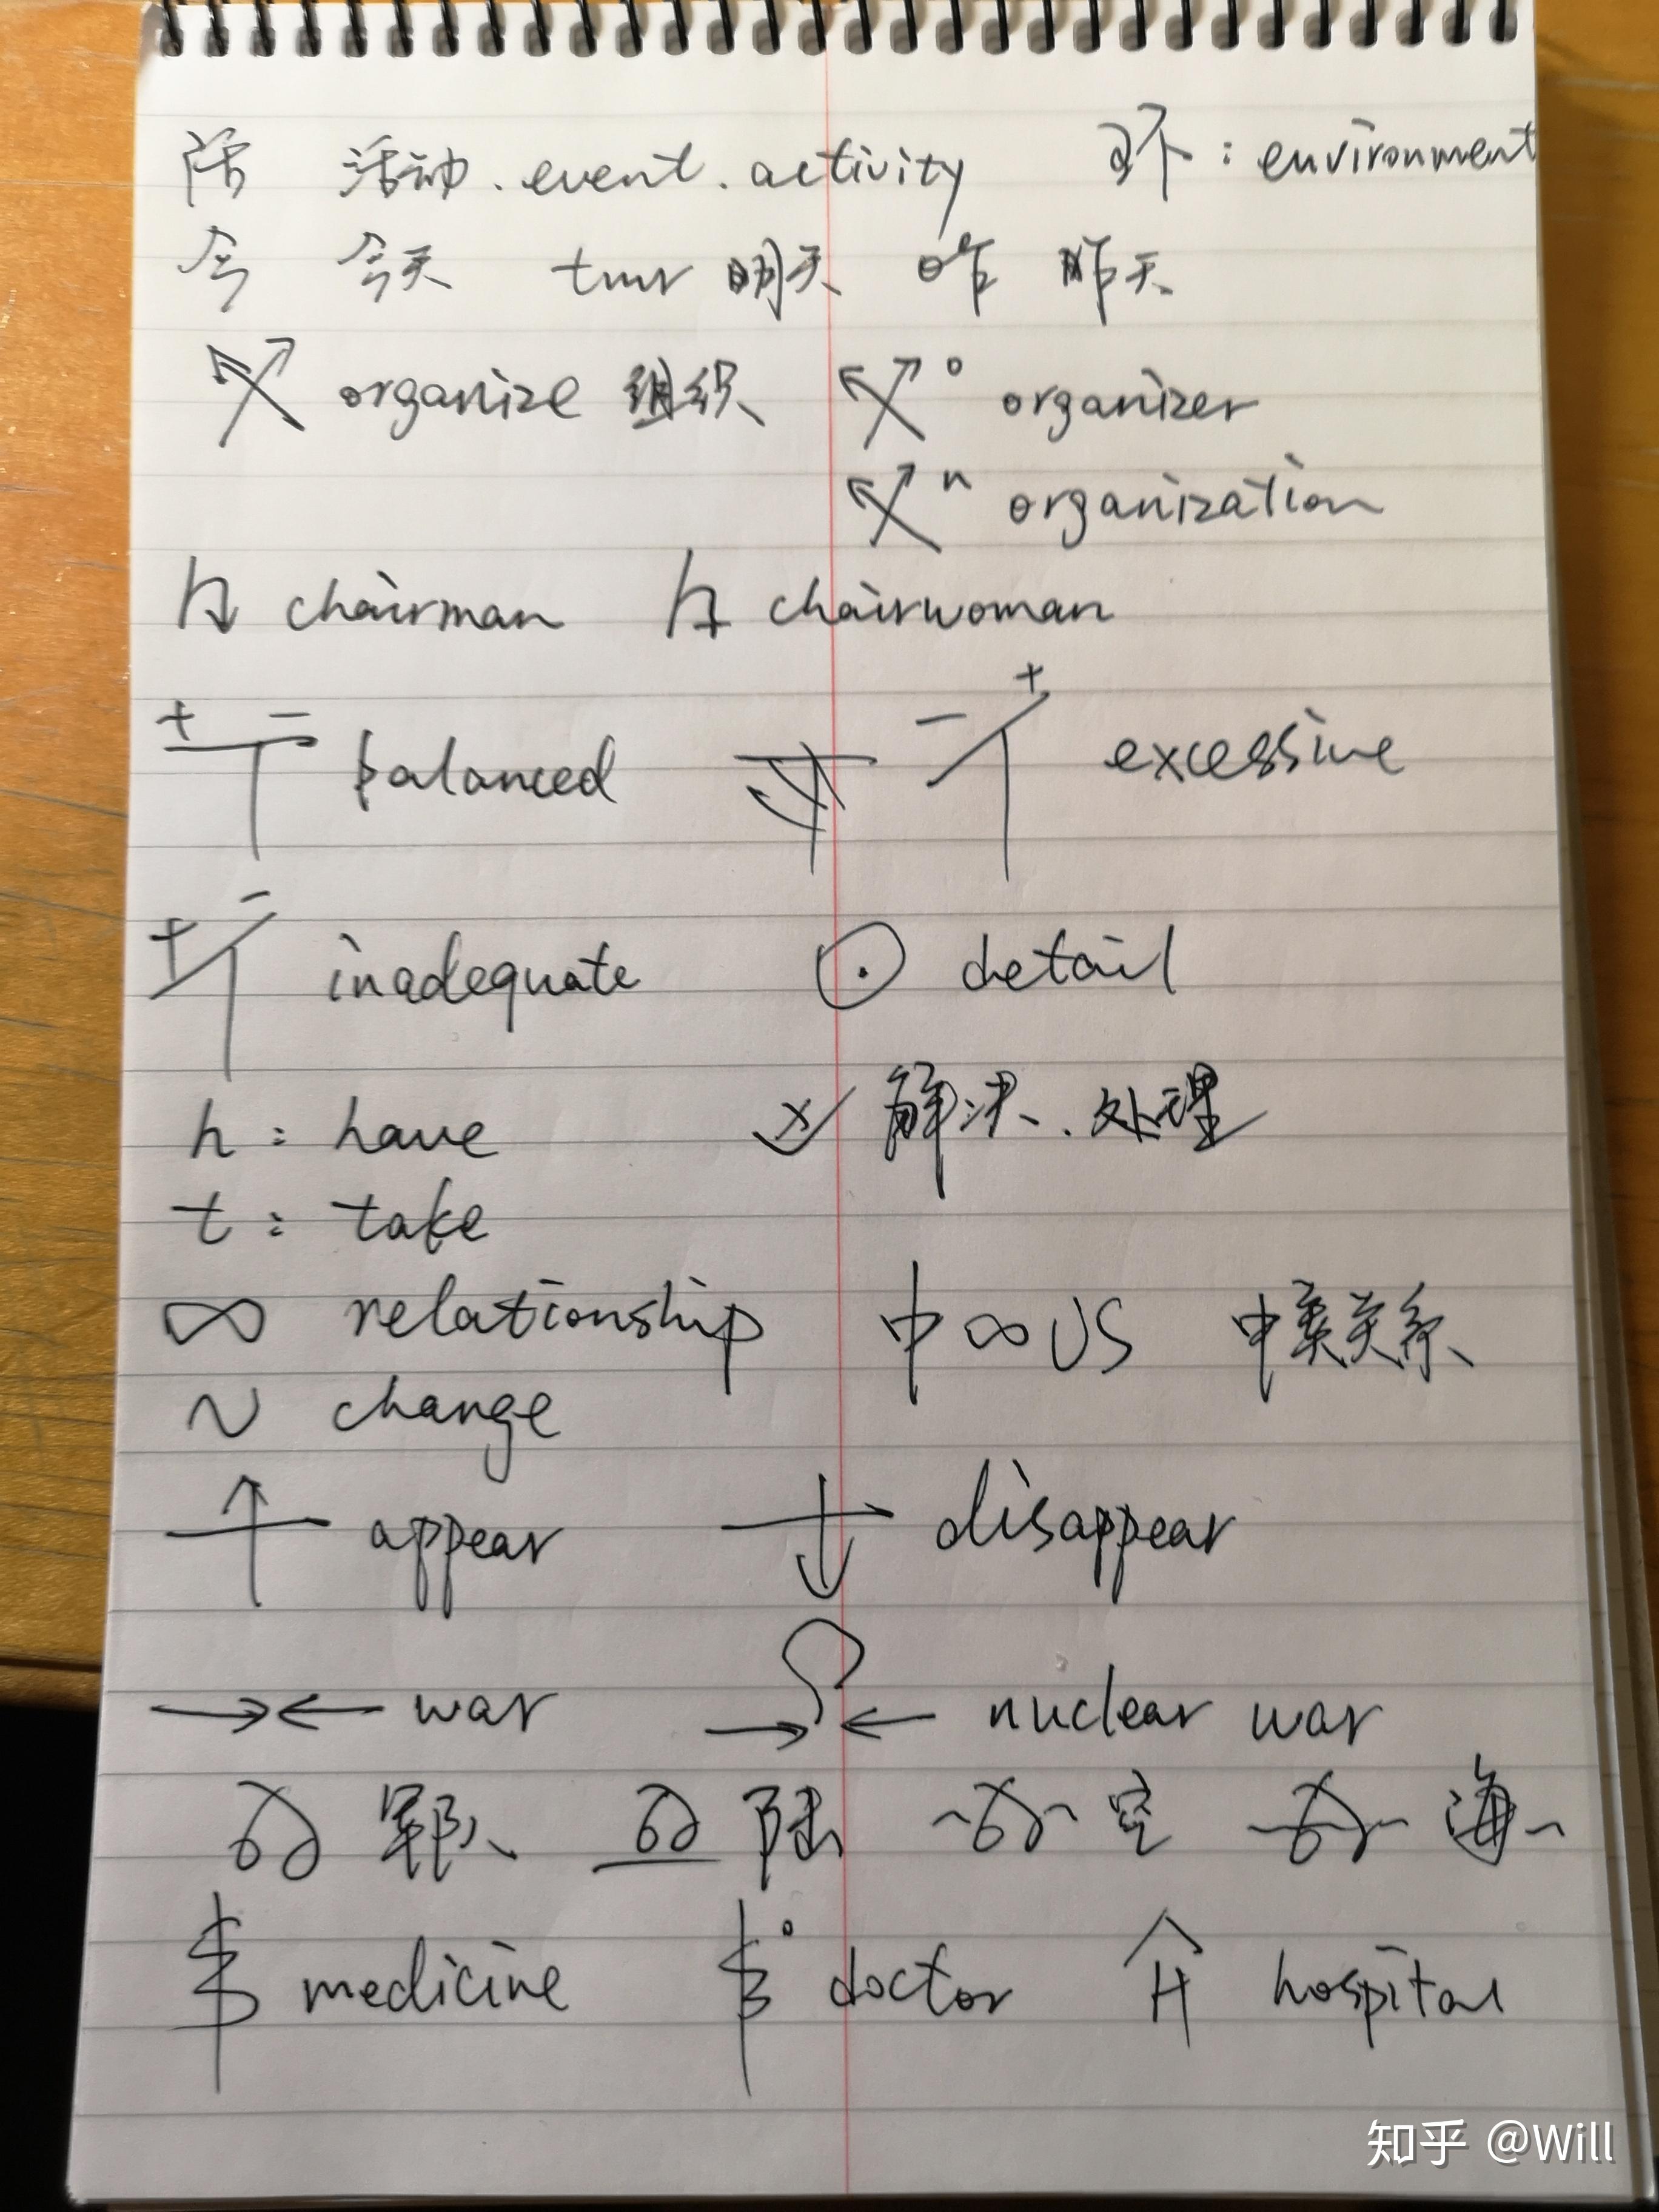 活 活动.event.activity 环:environment
今 今天 tmr 明天 昨 昨天
organize 组织 o organizer
n organization
chairman chairwoman
+ − balanced − + excessive
+ − inadequate ⊙ detail
h:have 解决.处理
t:take
∞ relationship 中∞US 中美关系
~ change
appear disappear
→← war →← nuclear war
军队 陆 空 海
medicine doctor H hospital
知乎 @Will